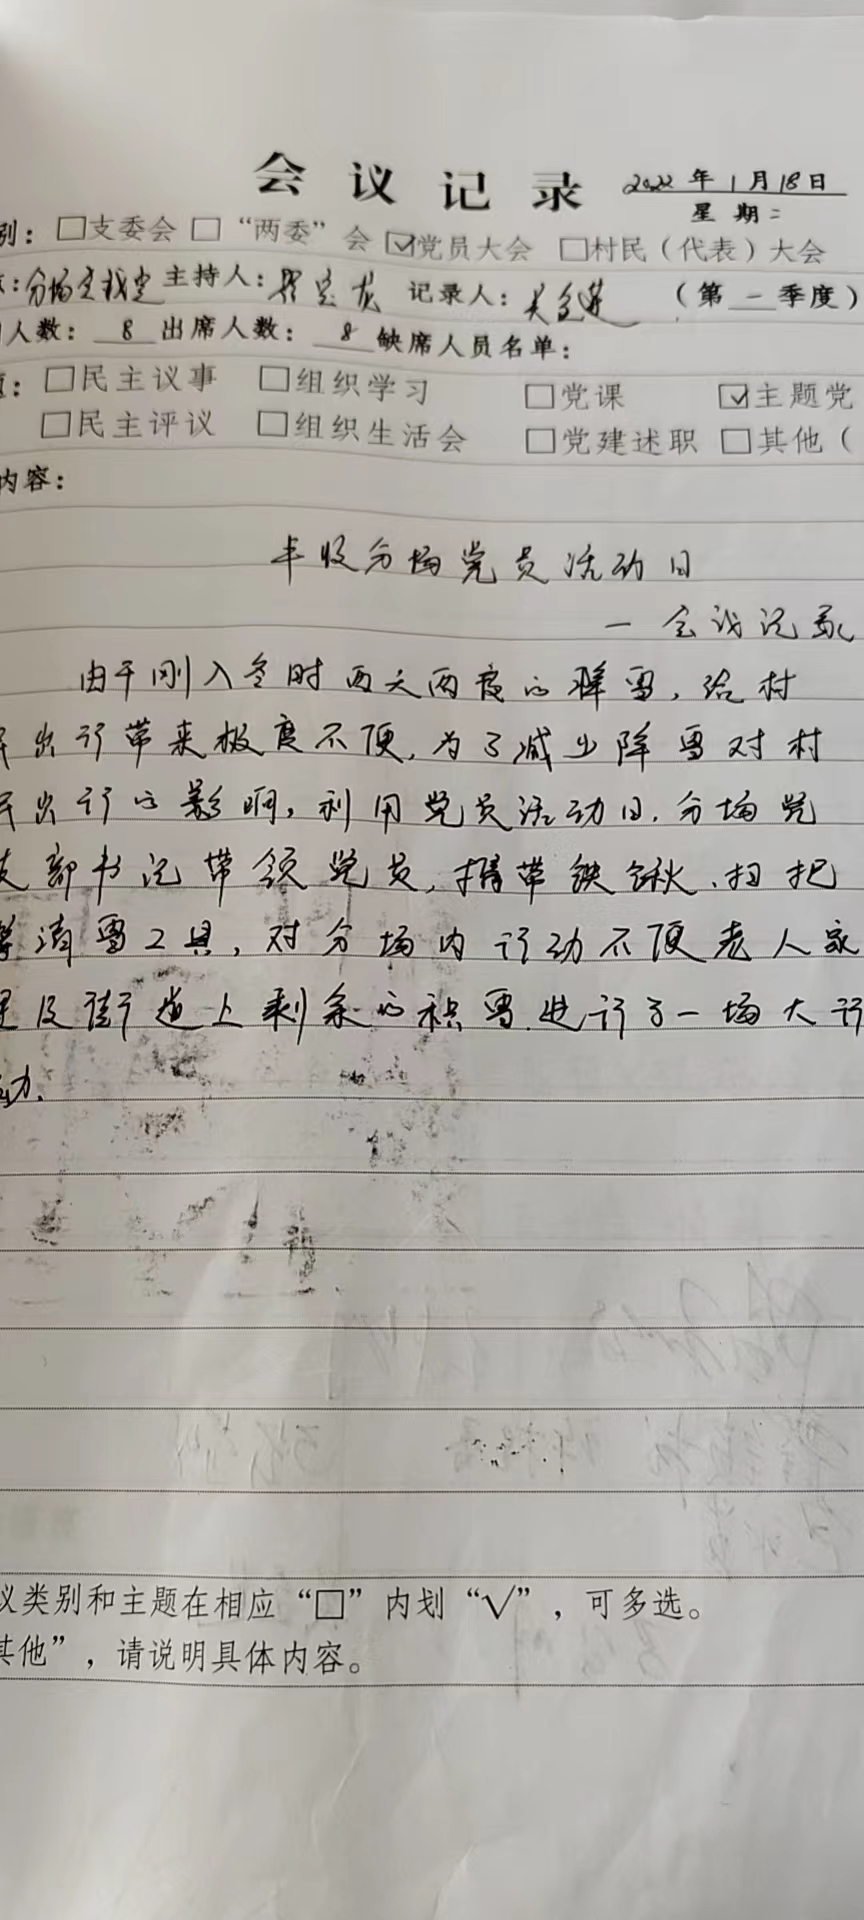 会议记录 2022年1月18日
星期二
别：□支委会 □“两委”会 ☑党员大会 □村民（代表）大会
：分场 主持人： 记录人： （第一季度）
人数：8 出席人数：8 缺席人员名单：
：□民主议事 □组织学习 □党课 ☑主题党
□民主评议 □组织生活会 □党建述职 □其他（
内容：
丰收分场党员活动日
一会议记录
由于刚入冬时两天两夜的降雪，给村
民出行带来极度不便，为了减少降雪对村
民出行的影响，利用党员活动日，分场党
支部书记带领党员，携带铁锹、扫把
等清雪工具，对分场内行动不便老人家
里及街道上剩余的积雪，进行了一场大行
动.
议类别和主题在相应“□”内划“√”，可多选。
其他”，请说明具体内容。